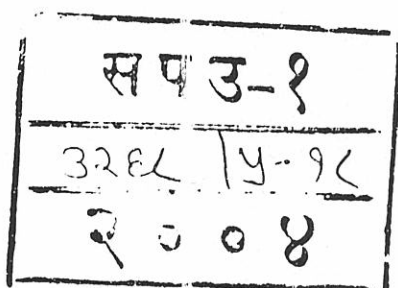 स प उ-१
३२६८ / ५-१८
२००४